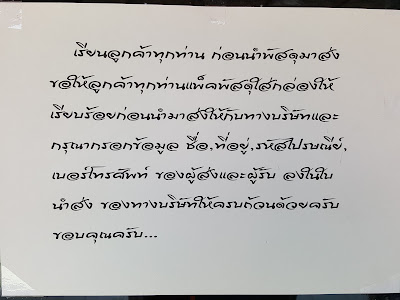 เรียนลูกค้าทุกท่าน ก่อนนำพัสดุมาส่ง
ขอให้ลูกค้าทุกท่านแพ็คพัสดุใส่กล่องให้
เรียบร้อยก่อนนำมาส่งให้กับทางบริษัทและ
กรุณากรอกข้อมูล ชื่อ,ที่อยู่,รหัสไปรษณีย์,
เบอร์โทรศัพท์ ของผู้ส่งและผู้รับ ลงในใบ
นำส่ง ของทางบริษัทให้ครบถ้วนด้วยครับ
ขอบคุณครับ...